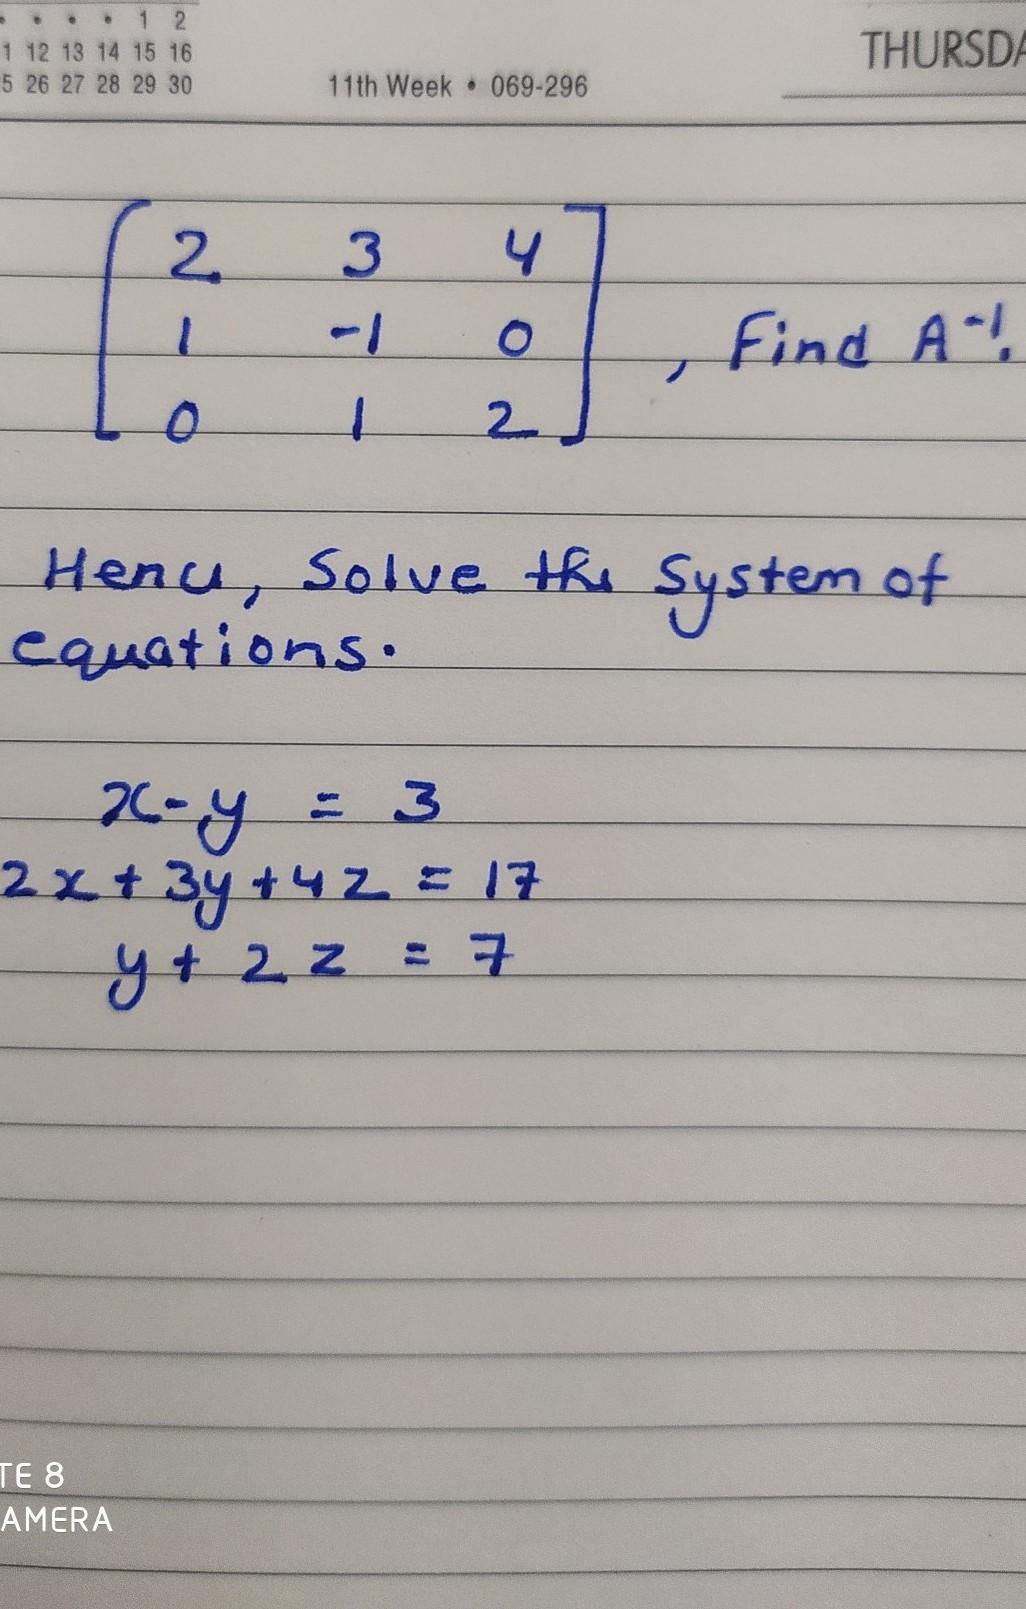 1 2
1 12 13 14 15 16
5 26 27 28 29 30
11th Week • 069-296
THURSDA
2 3 4
1 -1 0
0 1 2
, Find A⁻¹.
Henu, Solve the System of
equations.
x-y = 3
2x+3y+4z = 17
y+2z = 7
TE 8
AMERA